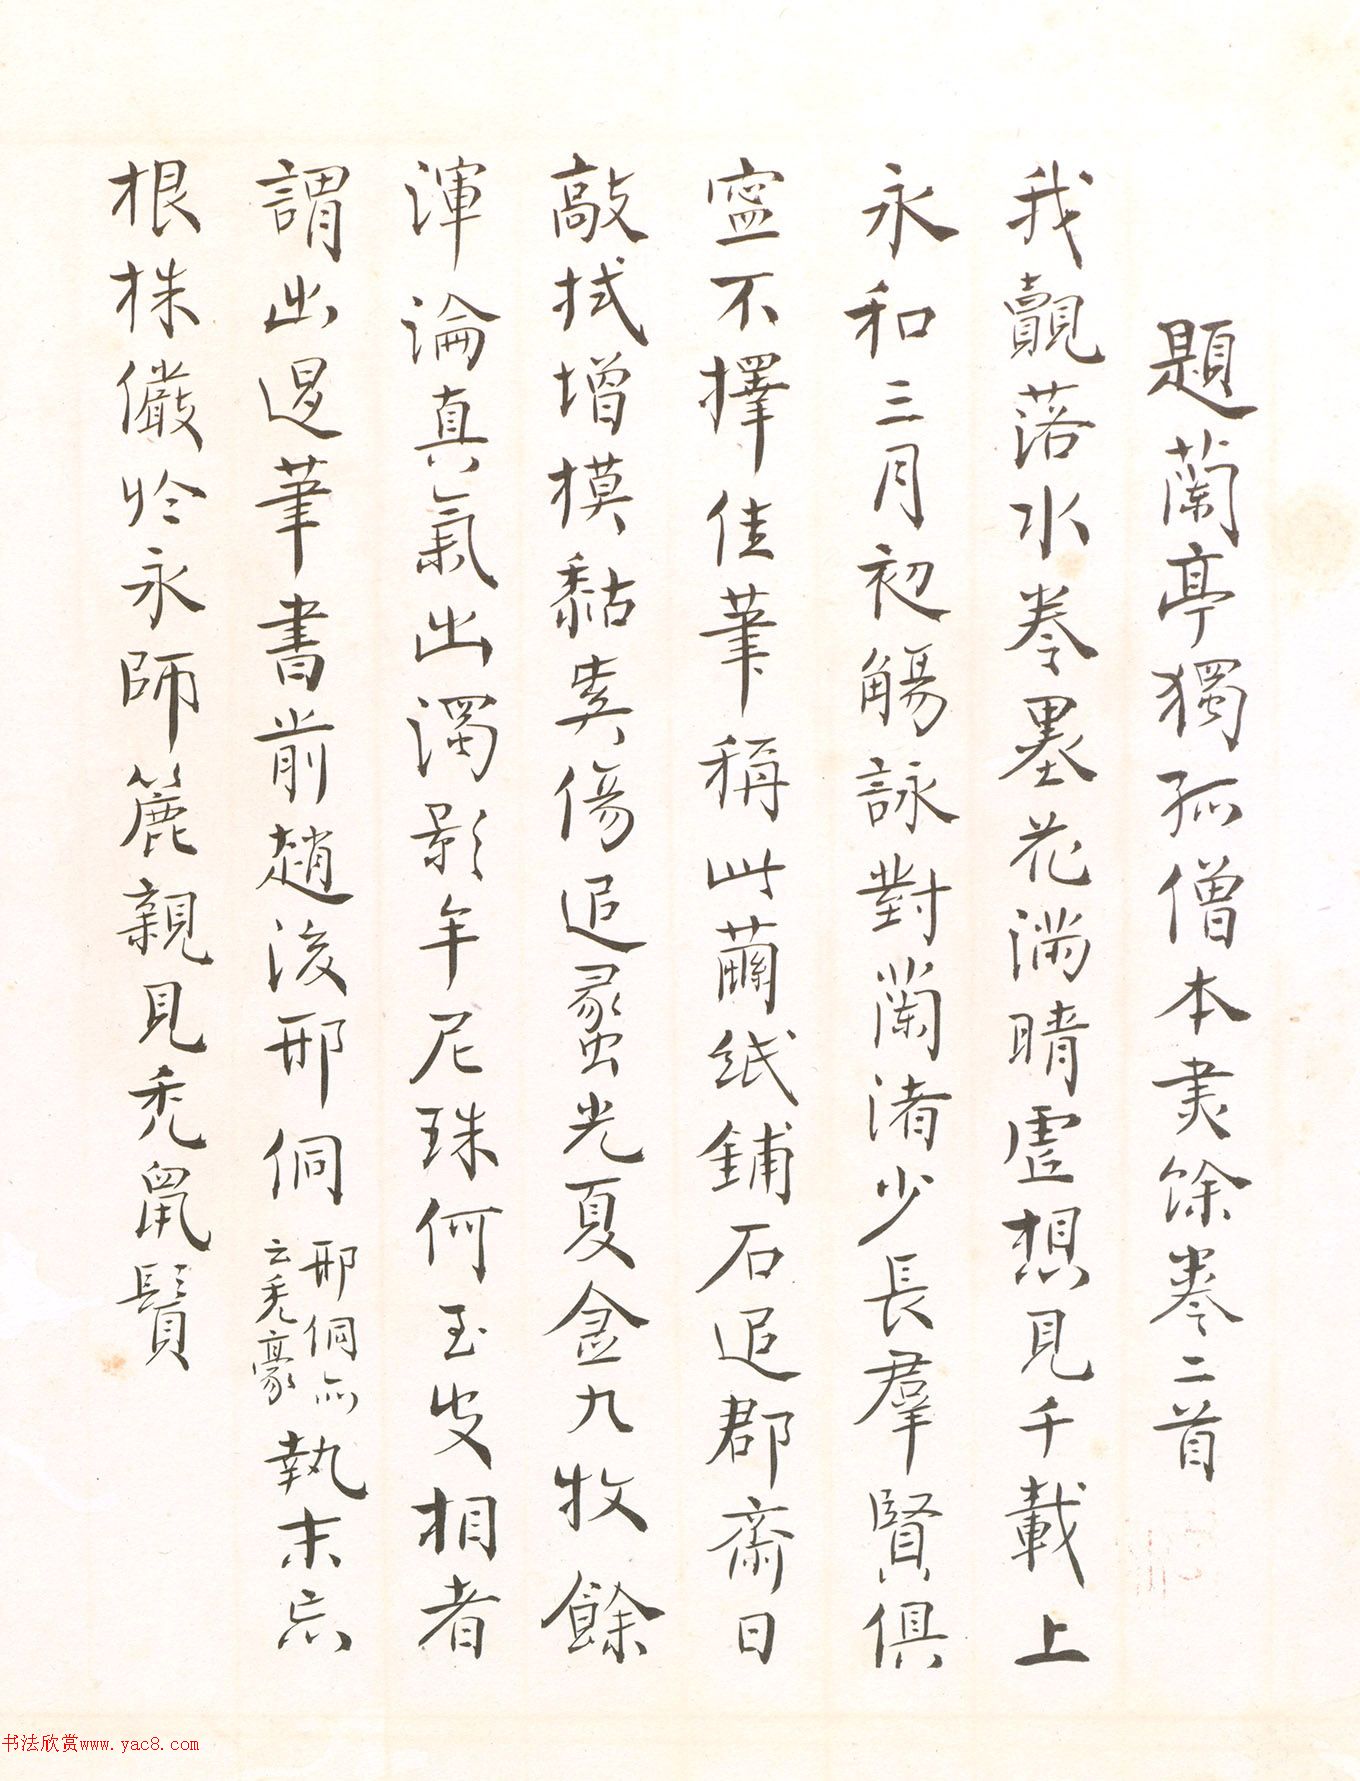 題蘭亭獨孤僧本燼餘卷二首
我觀落水卷墨花滿晴虛想見千載上
永和三月初觴詠對蘭渚少長羣賢俱
寧不擇佳筆稱此繭紙鋪石追郡齋日
敲拭增模黏貴傷追蠡光夏金九牧餘
渾淪真氣出濁影牟尼珠何至皮相者
謂出退筆書前趙後邢侗邢侗亦云禿豪執末忘
根株儼於永師簏親見禿鼠鬚
书法欣赏www.yac8.com